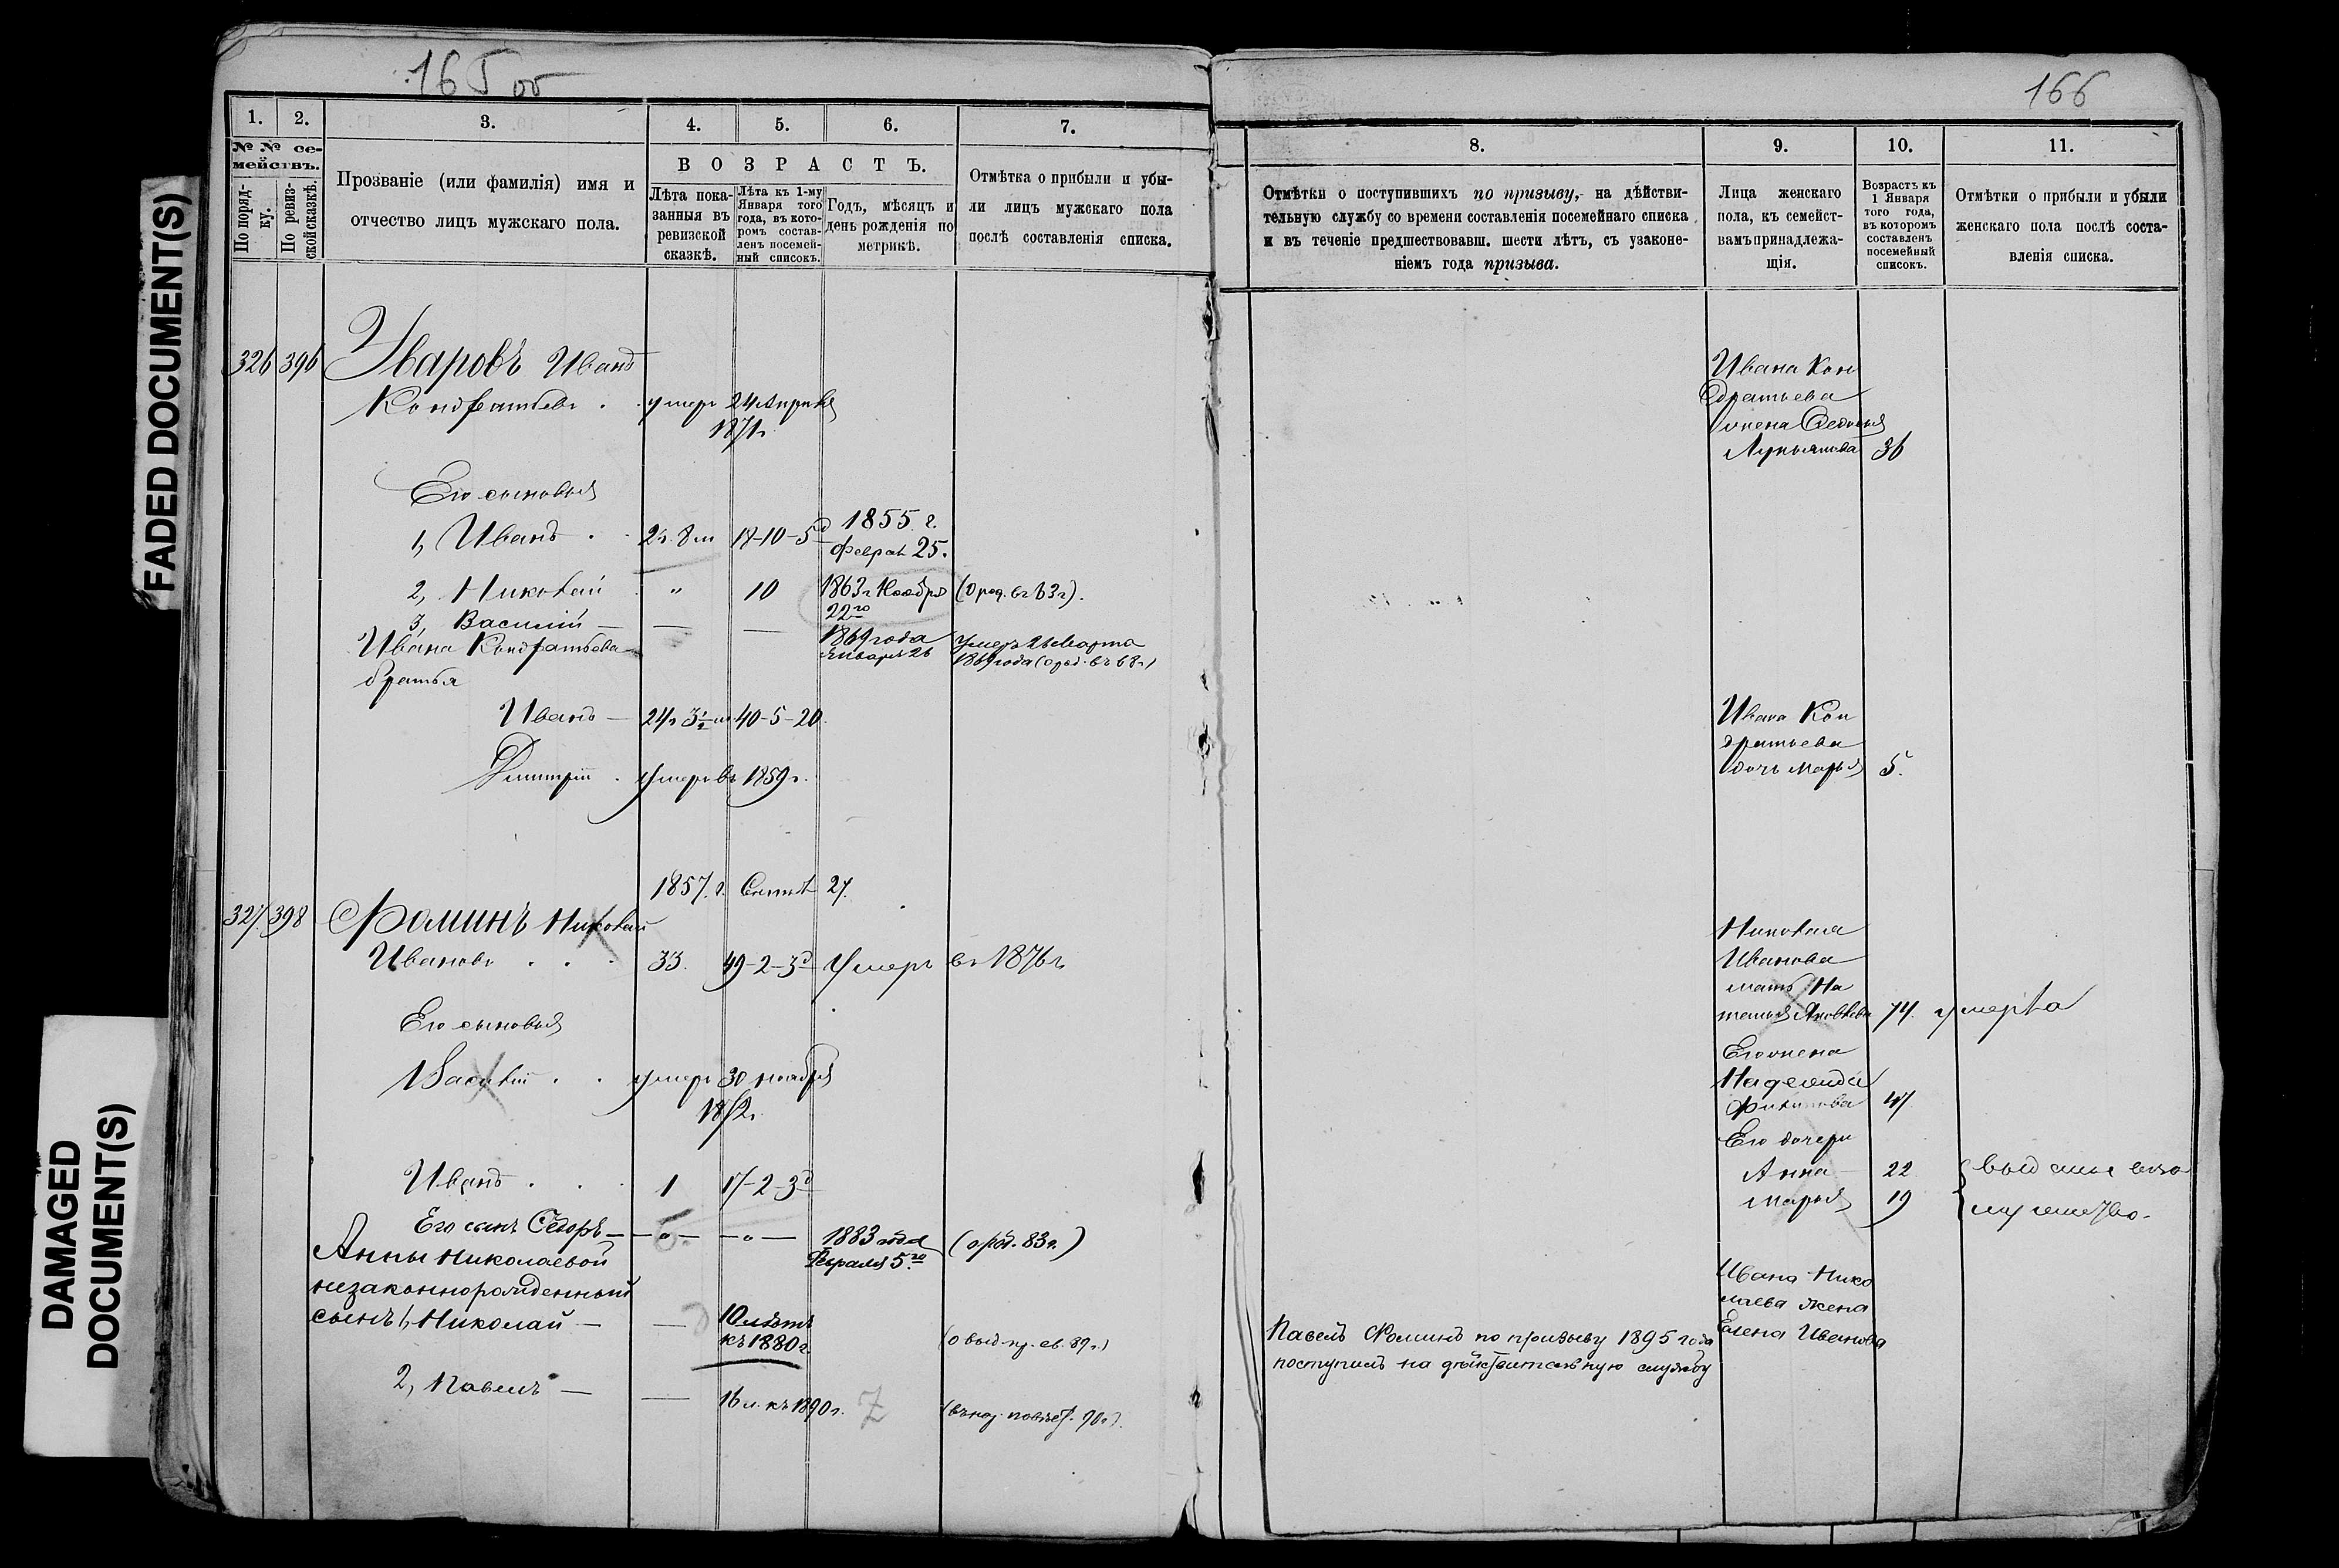 FADED DOCUMENT(S)
DAMAGED
DOCUMENT(S)
165 об
1. 2. 3. 4. 5. 6. 7.
№ № се-
мействъ.
По поряд-
ку.
По ревиз-
ской сказкѣ.
Прозваніе (или фамилія) имя и
отчество лицъ мужскаго пола.
ВОЗРАСТЪ.
Лѣта пока-
занныя въ
ревизской
сказкѣ.
Лѣта къ 1-му
Января того
года, въ кото-
ромъ состав-
ленъ посемей-
ный списокъ.
Годъ, мѣсяцъ и
день рожденія по
метрикѣ.
Отмѣтка о прибыли и убы-
ли лицъ мужскаго пола
послѣ составленія списка.
326 396 Уваровъ Иванъ
Кондратьевъ . . умеръ 24 Апрѣля
1871г.
Его сыновья
1, Иванъ . . 2г. 8м 18-10-5д 1855 г.
Феврал 25.
2, Николай " 10 1863г Ноября (О род. въ 63г).
22го
3, Василій — — — 1869 года умеръ 26 Марта
Января 26 1869 года (о род. въ 68г)
Ивана Кондратьева
братья
Иванъ — 24г 3½м 40-5-20.
Дмитрій . умеръ въ 1859г.
1857. г. Сентяб 27.
327. 398 Фоминъ Николай
Ивановъ . . . 33. 49-2-3д Умеръ въ 1876г
Его сыновья
Василій . . умеръ 30 ноября
1872г.
Иванъ . . . 1 17-2-3д
Его сынъ Ѳедоръ — — " — — " — 1883 года (о род. 83г.)
Февраля 5.го
Анны Николаевой
незаконнорожденный
сынъ 1, Николай — — 10 лѣтъ
къ 1880г. (о выд. пр. св. 89г.)
2, Павелъ — — 16 л. къ 1890г.
166
8. 9. 10. 11.
Отмѣтки о поступившихъ по призыву, на дѣйстви-
тельную службу со времени составленія посемейнаго списка
и въ теченіе предшествовавш. шести лѣтъ, съ узаконе-
ніемъ года призыва.
Лица женскаго
пола, къ семейст-
вамъ принадлежа-
щія.
Возрастъ къ
1 Января
того года,
въ которомъ
составленъ
посемейный
списокъ.
Отмѣтки о прибыли и убыли
женскаго пола послѣ соста-
вленія списка.
Ивана Кон
дратьева
жена Ѳедосья
Лукьянова 36
Ивана Кон
дратьева
дочь Марья 5.
Николая
Иванова
мать На
талья Яковлева 74. умерла
Его жена
Надежда
Филипова 47
Его дочери
Анна — 22
Марья 19
вышли въ за
мужество.
Ивана Нико
лаева жена
Елена Иванова
Павелъ Фоминъ по призыву 1895 года
поступилъ на дѣйствительную службу